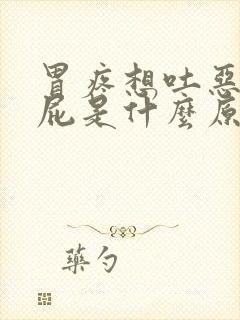 胃疼想吐惡
屁是什麼原
藥勺